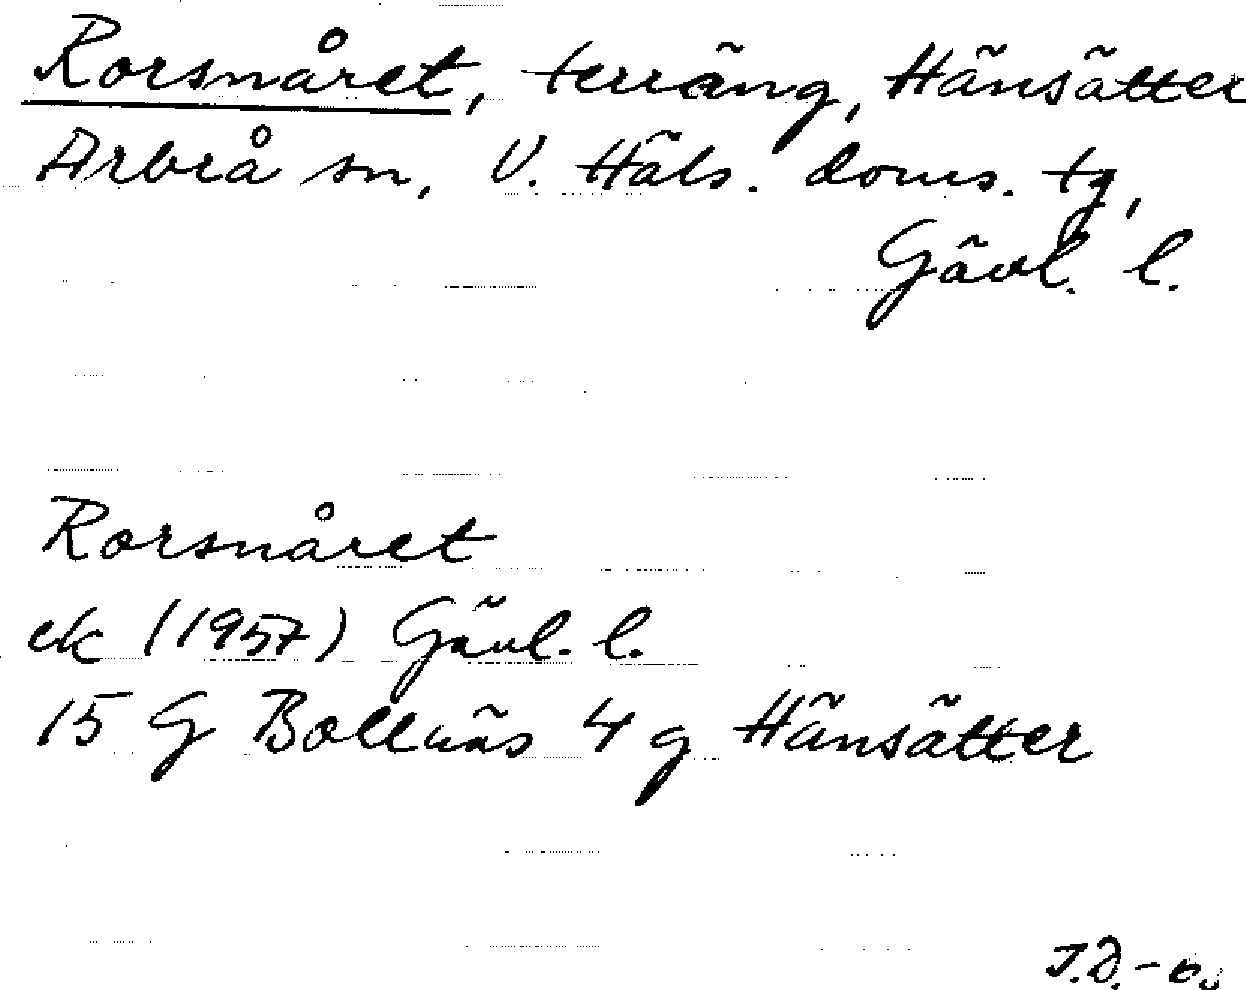 Rorsnåret, terräng, Hänsätter
Arbrå sn, V. Häls. doms. tg,
Gävl. l.
Rorsnåret
ek (1957) Gävl. l.
15 G Bollnäs 4 g Hänsätter